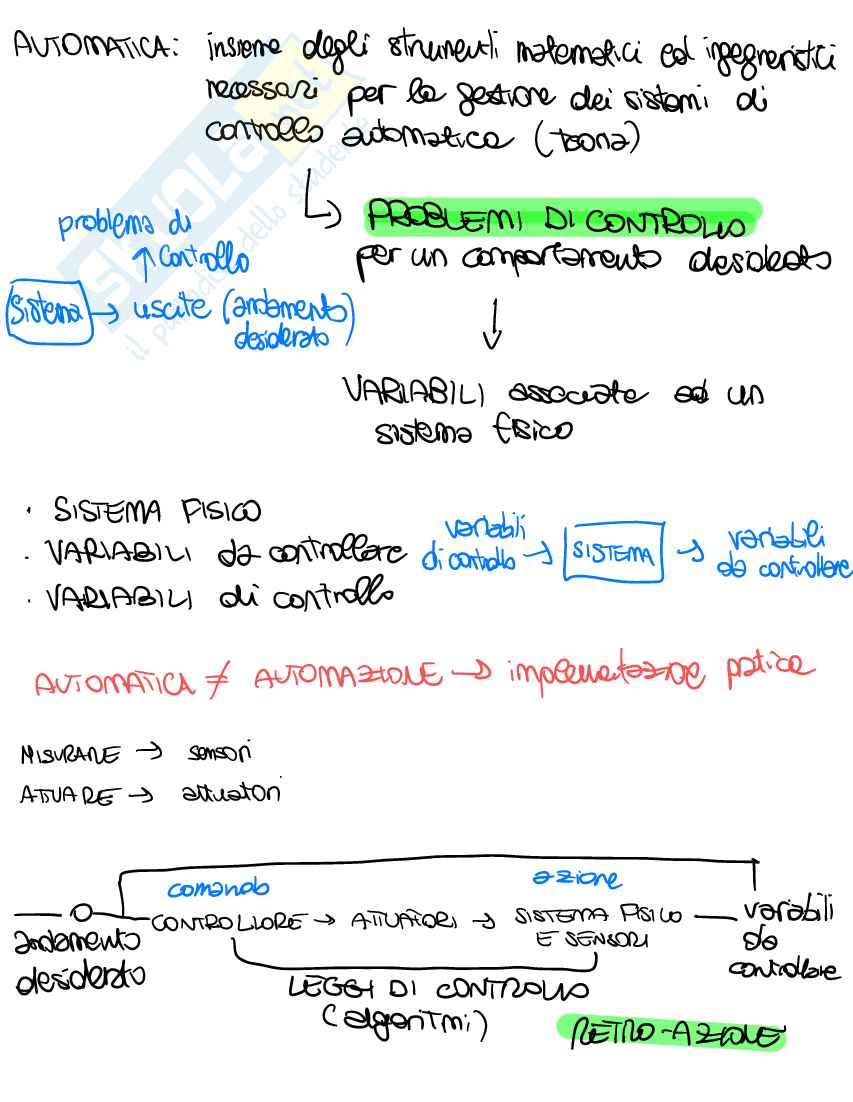 AUTOMATICA: insieme degli strumenti matematici ed ingegneristici
necessari per la gestione dei sistemi di
controllo automatica (teoria)
↳ PROBLEMI DI CONTROLLO
per un comportamento desiderato
problema di
↑ controllo
Sistema → uscite (andamento
desiderato)
↓
VARIABILI associate ad un
sistema fisico
· SISTEMA FISICO
· VARIABILI da controllare
· VARIABILI di controllo
variabili
di controllo → SISTEMA → variabili
da controllare
AUTOMATICA ≠ AUTOMAZIONE → implementazione pratica
MISURARE → sensori
ATTUARE → attuatori
comando azione
andamento
desiderato
CONTROLLORE → ATTUATORI → SISTEMA FISICO
E SENSORI
variabili
da
controllare
LEGGI DI CONTROLLO
(algoritmi)
RETRO-AZIONE
SKUOLA.net
il paradiso dello studente